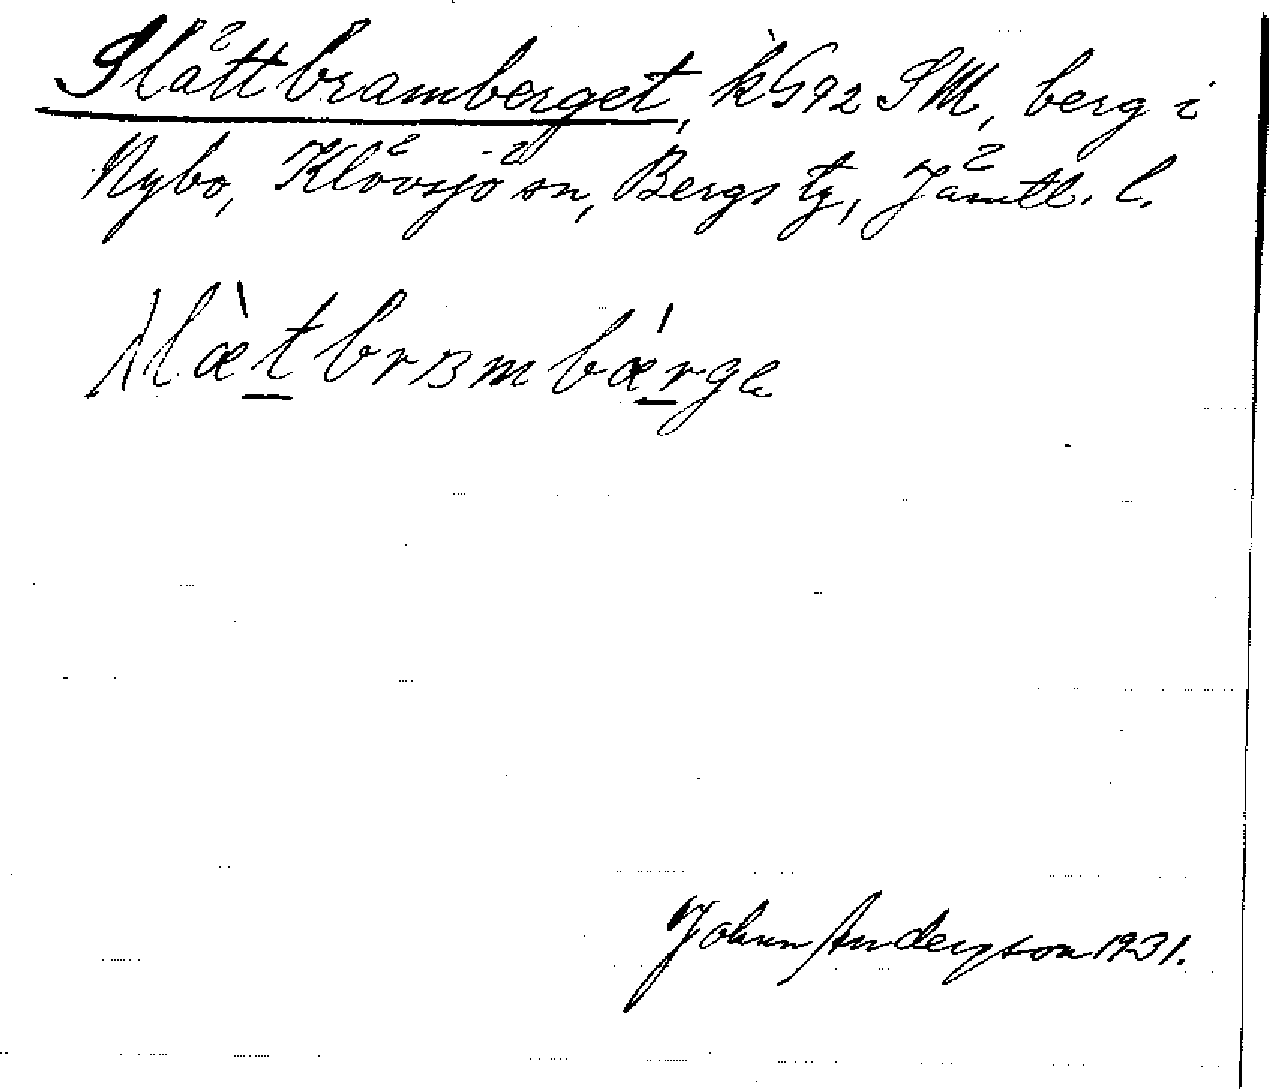 Slättbramberget, k G92 SM, berg i
Nybo, Klövsjö sn, Bergs tg, Jämtl. l.
bræmbærge
Johan Anderson 1931.